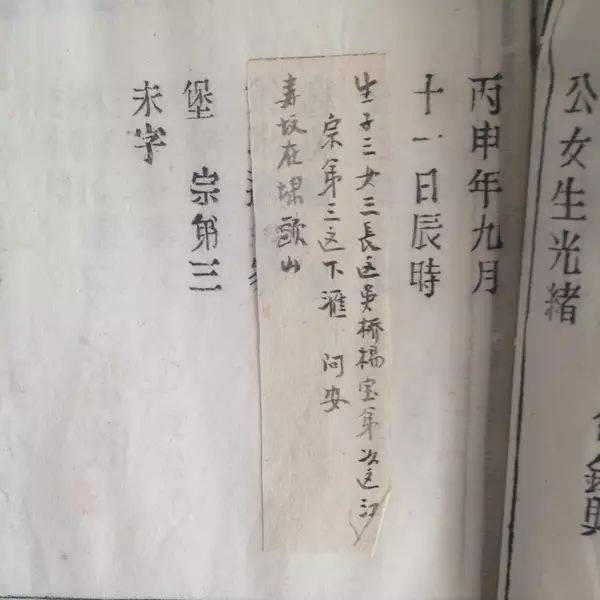 公女生光緒
丙申年九月
十一日辰時
生子三女三長适吳桥楊宝第次适江
宗第三适下滙 阿安
寿坟在 山
堡 宗第三
未字